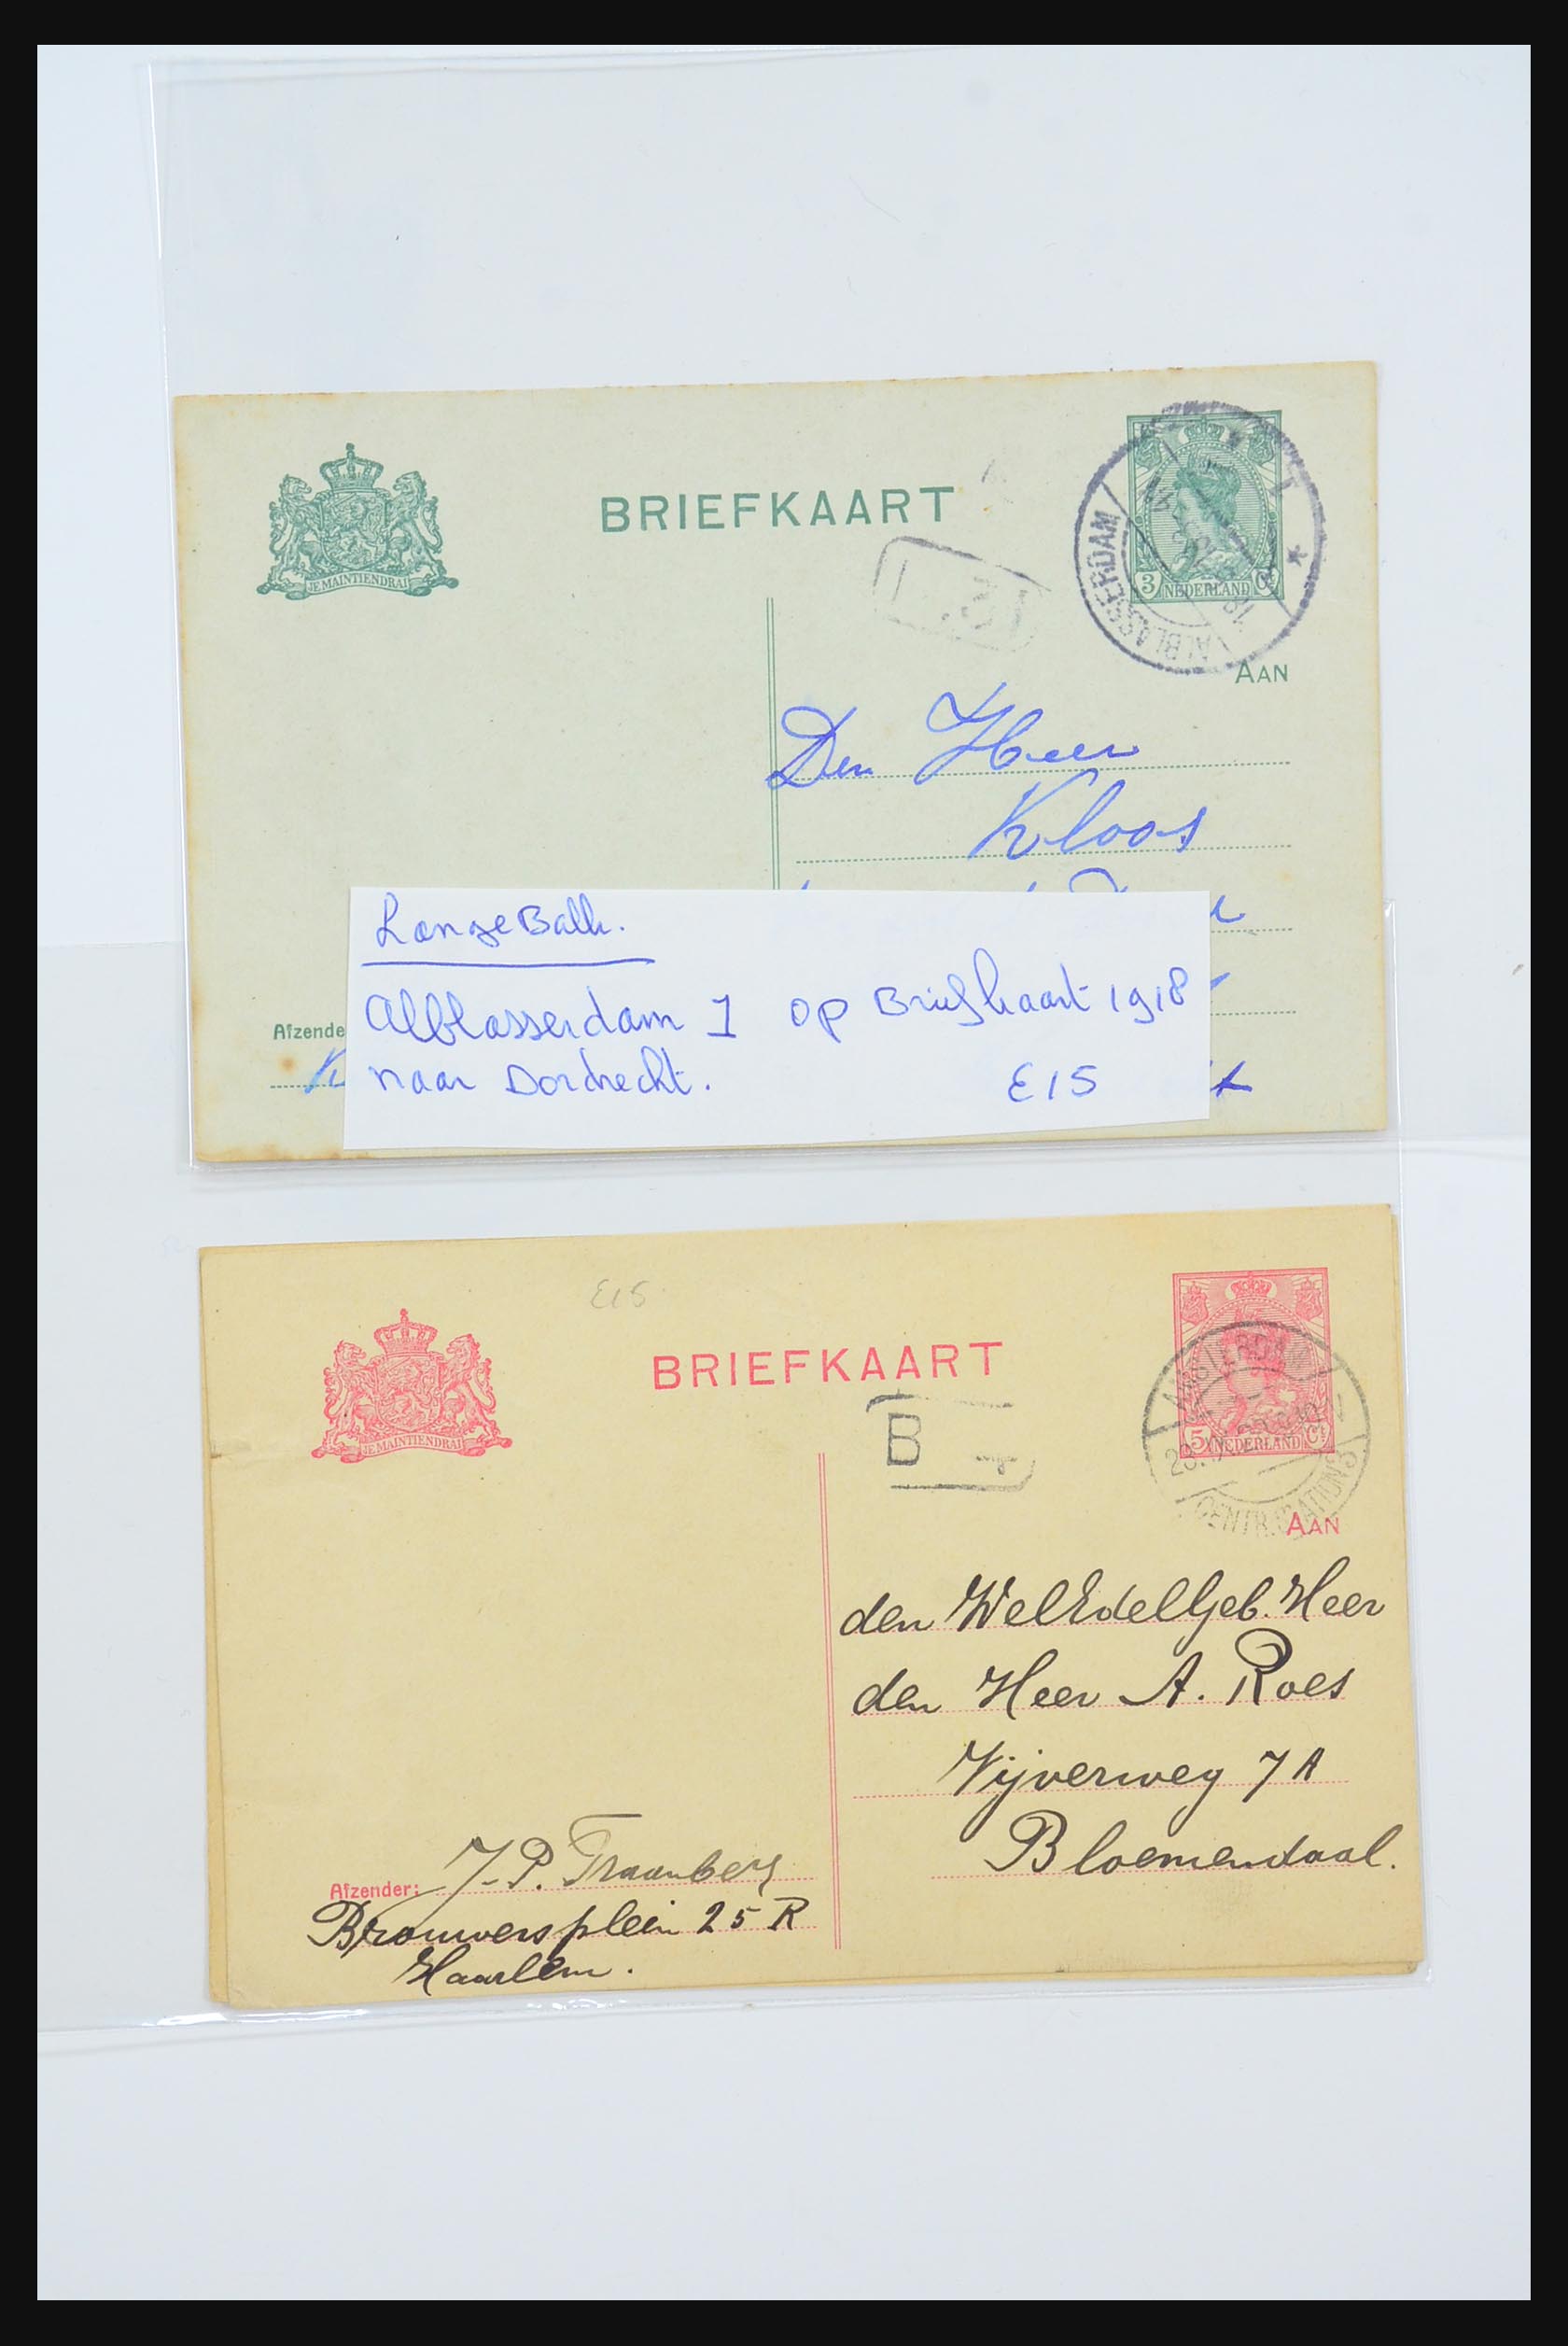 BRIEFKAART
JE MAINTIENDRAI
3 NEDERLAND Ct
ALBLASSERDAM 1
AAN
Den Heer
Kloos
Lange Balk.
Alblasserdam 1 op Briefkaart 1918
naar Dordrecht. €15
Afzende
€15
BRIEFKAART
JE MAINTIENDRAI
5 NEDERLAND Ct
AMSTERDAM
CENTR. STATION
B
AAN
den WelEdelGeb. Heer
den Heer A. Roes
Vijverweg 7A
Bloemendaal.
Afzender: J. P. Traanberg
Brouwersplein 25 R
Haarlem.